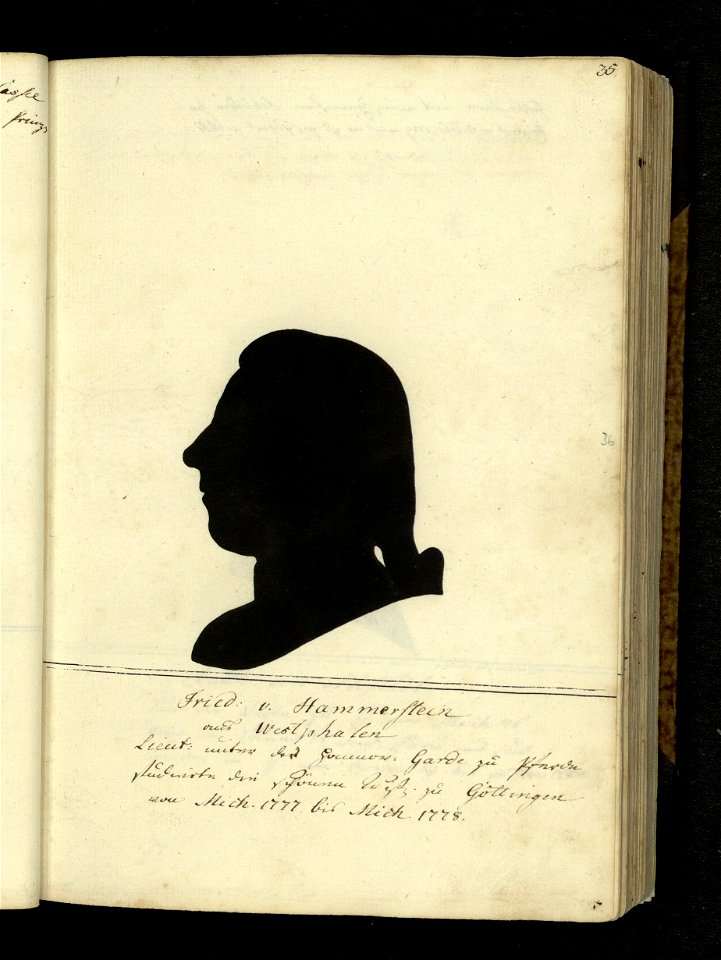 35
36
Fried: v. Hammerstein
aus Westphalen
Lieut: unter der Hannov: Garde zu Pferde
studierte die schönen Wiß. zu Göttingen
von Mich. 1777 bis Mich 1778.